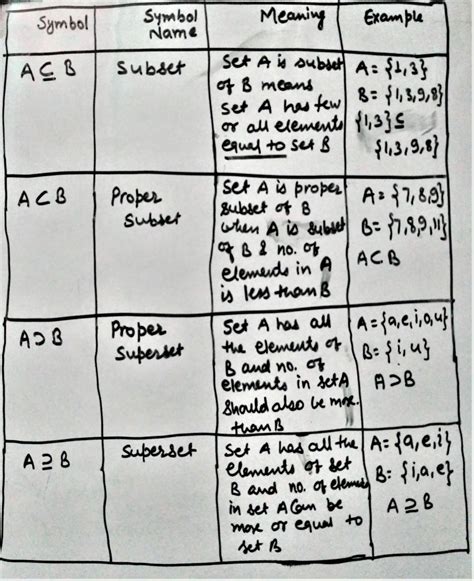 Symbol
Symbol Name
Meaning
Example
A ⊆ B
Subset
Set A is subset
of B means
set A has few
or all elements
equal to set B
A = {1,3}
B = {1,3,9,8}
{1,3} ⊆
{1,3,9,8}
A ⊂ B
Proper
Subset
Set A is proper
subset of B
when A is subset
of B & no. of
elements in A
is less than B
A = {7,8,9}
B = {7,8,9,11}
A ⊂ B
A ⊃ B
Proper
Superset
Set A has all
the elements of
B and no. of
elements in set A
should also be more.
than B
A = {a,e,i,o,u}
B = {i,u}
A ⊃ B
A ⊇ B
Superset
Set A has all the
elements of set
B and no. of elements
in set A can be
more or equal to
set B
A = {a,e,i}
B = {i,a,e}
A ⊇ B